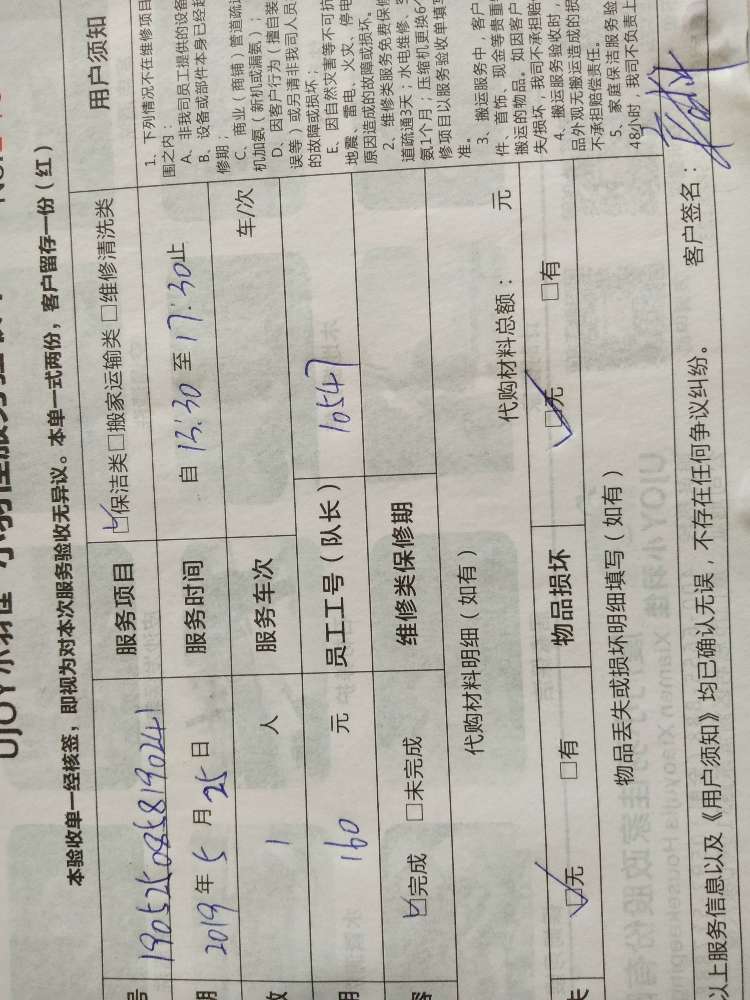 UJOY小羽佳
本验收单一经核签，即视为对本次服务验收无异议。本单一式两份，客户留存一份（红）
号 190525085819024 服务项目 ☑保洁类□搬家运输类 □维修清洗类 用户须知
期 2019 年 5 月 25 日 服务时间 自 13:30 至 17:30止
数 1 人 服务车次 车/次
160 元 员工工号（队长） 10547
容 ☑完成 □未完成 维修类保修期
代购材料明细（如有） 代购材料总额： 元
失 ☑无 □有 物品损坏 ☑无 □有
物品丢失或损坏明细填写（如有）
1、下列情况不在维修项目
围之内：
A、非我司员工提供的设备
B、设备或部件本身已经起
修期；
C、商业（商铺）管道疏通
机加氨（新机或漏氨）；
D、因客户行为（擅自装
误等）或另请非我司人员
的故障或损坏；
E、因自然灾害等不可抗
地震、雷电、火灾、停电
原因造成的故障或损坏。
2、维修类服务免费保修
道疏通3天；水电维修、
氨1个月；压缩机更换6个
修项目以服务验收单填写
准。
3、搬运服务中，客户
件、首饰、现金等贵重
搬运的物品。如因客户
失/损坏，我司不承担赔
4、搬运服务验收时，
品外观无搬运造成的损
不承担赔偿责任。
5、家庭保洁服务验
48小时，我司不负责上
以上服务信息以及《用户须知》均已确认无误，不存在任何争议纠纷。 客户签名：